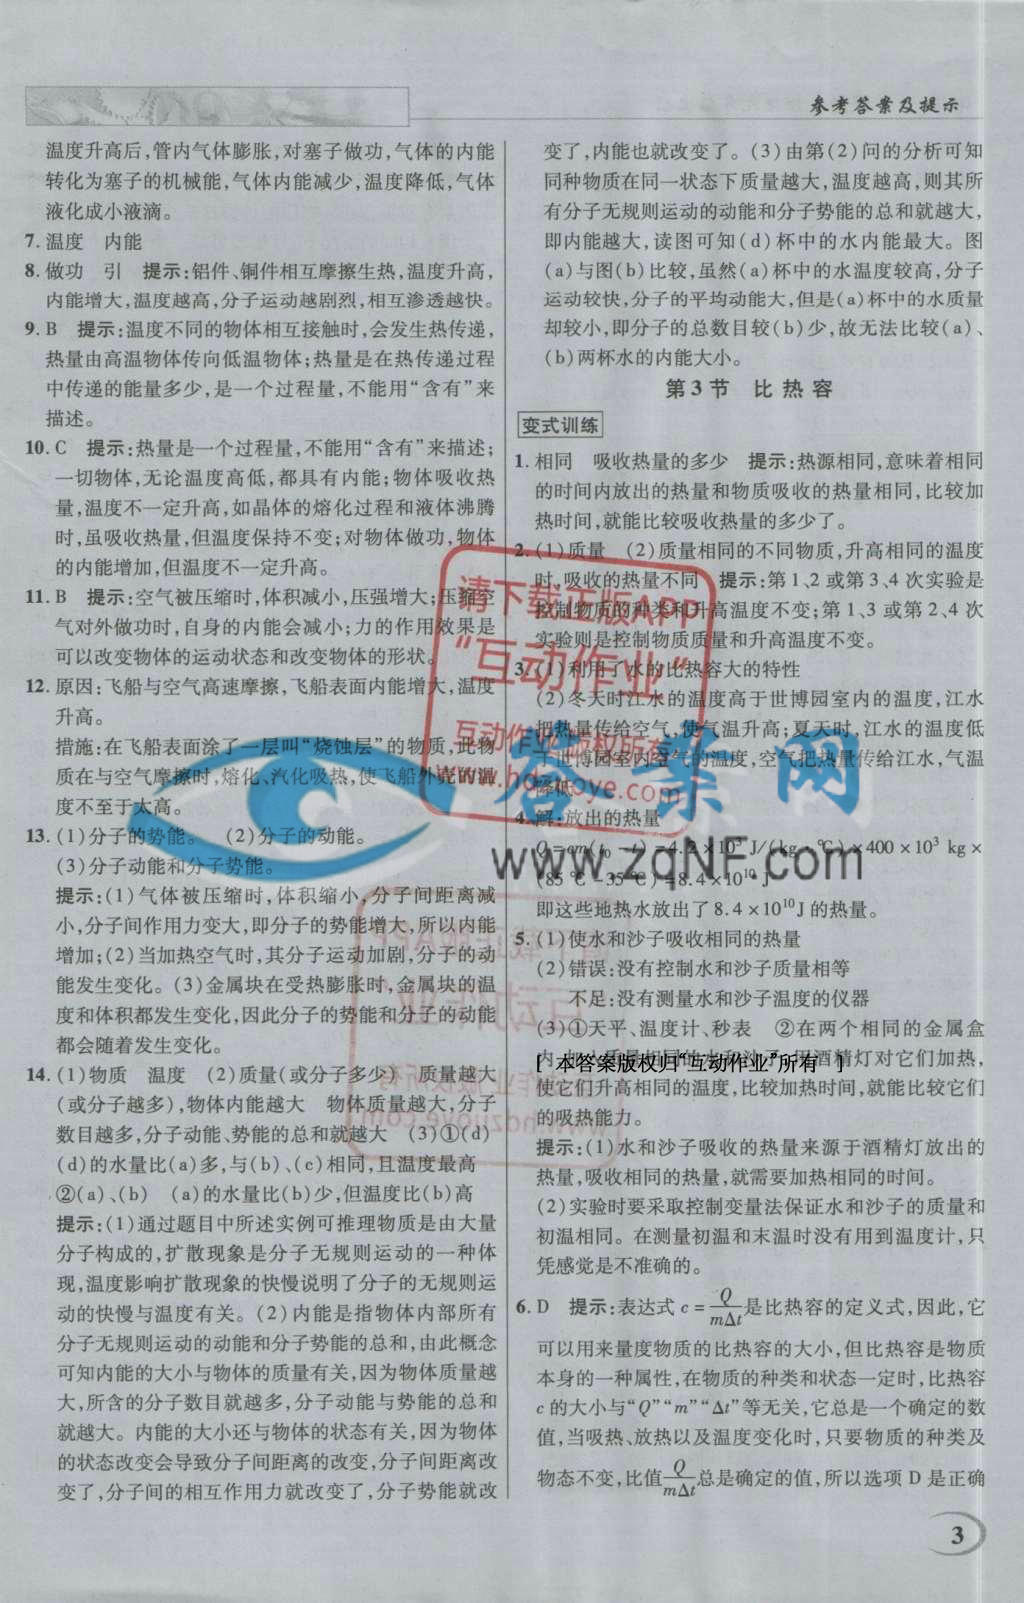 参考答案及提示
温度升高后,管内气体膨胀,对塞子做功,气体的内能
转化为塞子的机械能,气体内能减少,温度降低,气体
液化成小液滴。
7. 温度　内能
8. 做功　引　提示:铝件、铜件相互摩擦生热,温度升高,
内能增大,温度越高,分子运动越剧烈,相互渗透越快。
9. B　提示:温度不同的物体相互接触时,会发生热传递,
热量由高温物体传向低温物体;热量是在热传递过程
中传递的能量多少,是一个过程量,不能用“含有”来
描述。
10. C　提示:热量是一个过程量,不能用“含有”来描述;
一切物体,无论温度高低,都具有内能;物体吸收热
量,温度不一定升高,如晶体的熔化过程和液体沸腾
时,虽吸收热量,但温度保持不变;对物体做功,物体
的内能增加,但温度不一定升高。
11. B　提示:空气被压缩时,体积减小,压强增大;压缩空
气对外做功时,自身的内能会减小;力的作用效果是
可以改变物体的运动状态和改变物体的形状。
12. 原因:飞船与空气高速摩擦,飞船表面内能增大,温度
升高。
措施:在飞船表面涂了一层叫“烧蚀层”的物质,此物
质在与空气摩擦时,熔化、汽化吸热,使飞船外壳的温
度不至于太高。
13. (1)分子的势能。　(2)分子的动能。
(3)分子动能和分子势能。
提示:(1)气体被压缩时,体积缩小,分子间距离减
小,分子间作用力变大,即分子的势能增大,所以内能
增加;(2)当加热空气时,其分子运动加剧,分子的动
能发生变化。(3)金属块在受热膨胀时,金属块的温
度和体积都发生变化,因此分子的势能和分子的动能
都会随着发生变化。
14. (1)物质　温度　(2)质量(或分子多少)　质量越大
(或分子越多),物体内能越大　物体质量越大,分子
数目越多,分子动能、势能的总和就越大　(3)①(d)
(d)的水量比(a)多,与(b)、(c)相同,且温度最高
②(a)、(b)　(a)的水量比(b)少,但温度比(b)高
提示:(1)通过题目中所述实例可推理物质是由大量
分子构成的,扩散现象是分子无规则运动的一种体
现,温度影响扩散现象的快慢说明了分子的无规则运
动的快慢与温度有关。(2)内能是指物体内部所有
分子无规则运动的动能和分子势能的总和,由此概念
可知内能的大小与物体的质量有关,因为物体质量越
大,所含的分子数目就越多,分子动能与势能的总和
就越大。内能的大小还与物体的状态有关,因为物体
的状态改变会导致分子间距离的改变,分子间距离改
变了,分子间的相互作用力就改变了,分子势能就改
变了,内能也就改变了。(3)由第(2)问的分析可知
同种物质在同一状态下质量越大,温度越高,则其所
有分子无规则运动的动能和分子势能的总和就越大,
即内能越大,读图可知(d)杯中的水内能最大。图
(a)与图(b)比较,虽然(a)杯中的水温度较高,分子
运动较快,分子的平均动能大,但是(a)杯中的水质量
却较小,即分子的总数目较(b)少,故无法比较(a)、
(b)两杯水的内能大小。
第3节　比热容
变式训练
1. 相同　吸收热量的多少　提示:热源相同,意味着相同
的时间内放出的热量和物质吸收的热量相同,比较加
热时间,就能比较吸收热量的多少了。
2. (1)质量　(2)质量相同的不同物质,升高相同的温度
时,吸收的热量不同　提示:第1、2或第3、4次实验是
控制物质的种类和升高温度不变;第1、3或第2、4次
实验则是控制物质质量和升高温度不变。
3. (1)利用了水的比热容大的特性
(2)冬天时江水的温度高于世博园室内的温度,江水
把热量传给空气,使气温升高;夏天时,江水的温度低
于世博园室内空气的温度,空气把热量传给江水,气温
降低
4. 解:放出的热量
Q=cm(t₀-t)=4.2×10³ J/(kg·℃)×400×10³ kg×
(85 ℃-35 ℃)=8.4×10¹⁰ J
即这些地热水放出了8.4×10¹⁰J的热量。
5. (1)使水和沙子吸收相同的热量
(2)错误:没有控制水和沙子质量相等
不足:没有测量水和沙子温度的仪器
(3)①天平、温度计、秒表　②在两个相同的金属盒
[ 本答案版权归“互动作业”所有 ]
使它们升高相同的温度,比较加热时间,就能比较它们
的吸热能力。
提示:(1)水和沙子吸收的热量来源于酒精灯放出的
热量,吸收相同的热量,就需要加热相同的时间。
(2)实验时要采取控制变量法保证水和沙子的质量和
初温相同。在测量初温和末温时没有用到温度计,只
凭感觉是不准确的。
6. D　提示:表达式 c=Q/mΔt是比热容的定义式,因此,它
可以用来量度物质的比热容的大小,但比热容是物质
本身的一种属性,在物质的种类和状态一定时,比热容
c的大小与“Q”“m”“Δt”等无关,它总是一个确定的数
值,当吸热、放热以及温度变化时,只要物质的种类及
物态不变,比值Q/mΔt总是确定的值,所以选项D是正确
请下载正版APP
“互动作业”
互动作业 版权所有
www.hozuoye.com
答案网
www.zqnf.com
3